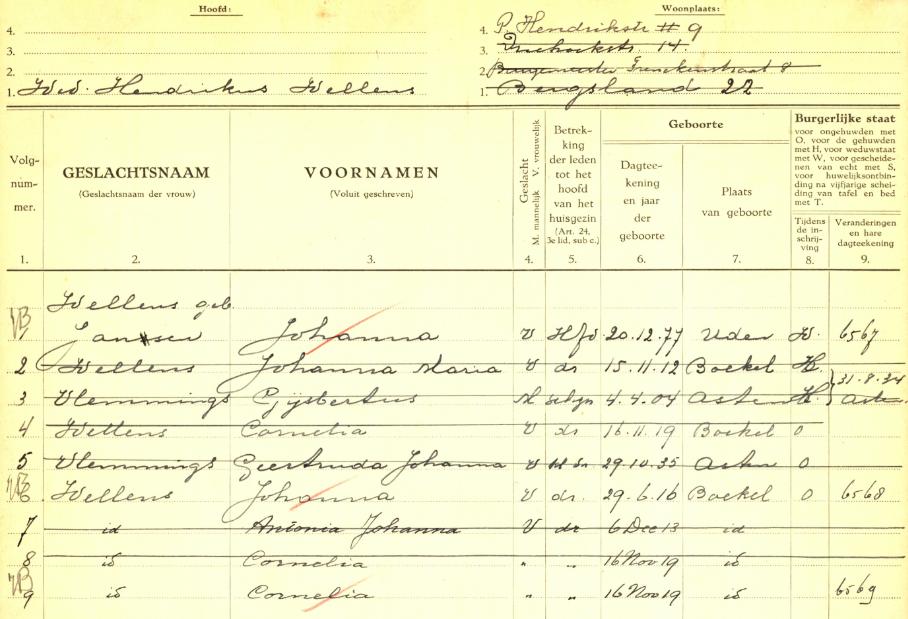 Hoofd:
4.
3.
2.
1. Wed. Hendrikus Wellens
Woonplaats:
4. P. Hendrikstr # 9
3. 14.
2. Burgemeester Frenckenstraat 8
1. Bergsland 22
Volgnummer.
GESLACHTSNAAM
(Geslachtsnaam der vrouw)
VOORNAMEN
(Voluit geschreven)
Geslacht
M. mannelijk V. vrouwelijk
Betrek-
king
der leden
tot het
hoofd
van het
huisgezin
(Art. 24,
3e lid, sub c.)
Geboorte
Dagtee-
kening
en jaar
der
geboorte
Plaats
van geboorte
Burgerlijke staat
voor ongehuwden met
O, voor de gehuwden
met H, voor weduwstaat
met W, voor gescheide-
nen van echt met S,
voor huwelijksontbin-
ding na vijfjarige schei-
ding van tafel en bed
met T.
Tijdens
de in-
schrij-
ving
Veranderingen
en hare
dagteekening
1. 2. 3. 4. 5. 6. 7. 8. 9.
Wellens geb.
Janssen Johanna V Hfd 20.12.77 Uden W. 6567
2 Wellens Johanna Maria V dr 15.11.12 Boekel H.
31.8.34
3 Vlemmings Gijsbertus M schzn 4.4.04 Asten H. Asten
4 Wellens Cornelia V dr 16.11.19 Boekel O
5 Vlemmings Geertruda Johanna V kl dr 29.10.35 Asten O
6 Wellens Johanna V dr. 29.6.16 Boekel O 6568
7 id Antonia Johanna V dr 6 Dec 13 id
8 id Cornelia " " 16 Nov 19 id
9 id Cornelia " " 16 Nov 19 id 6569